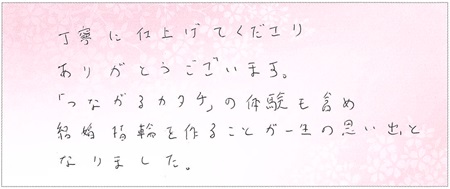 丁寧に仕上げてくださり
ありがとうございます。
「つながるカタチ」の体験も含め
結婚指輪を作ることが一生の思い出と
なりました。